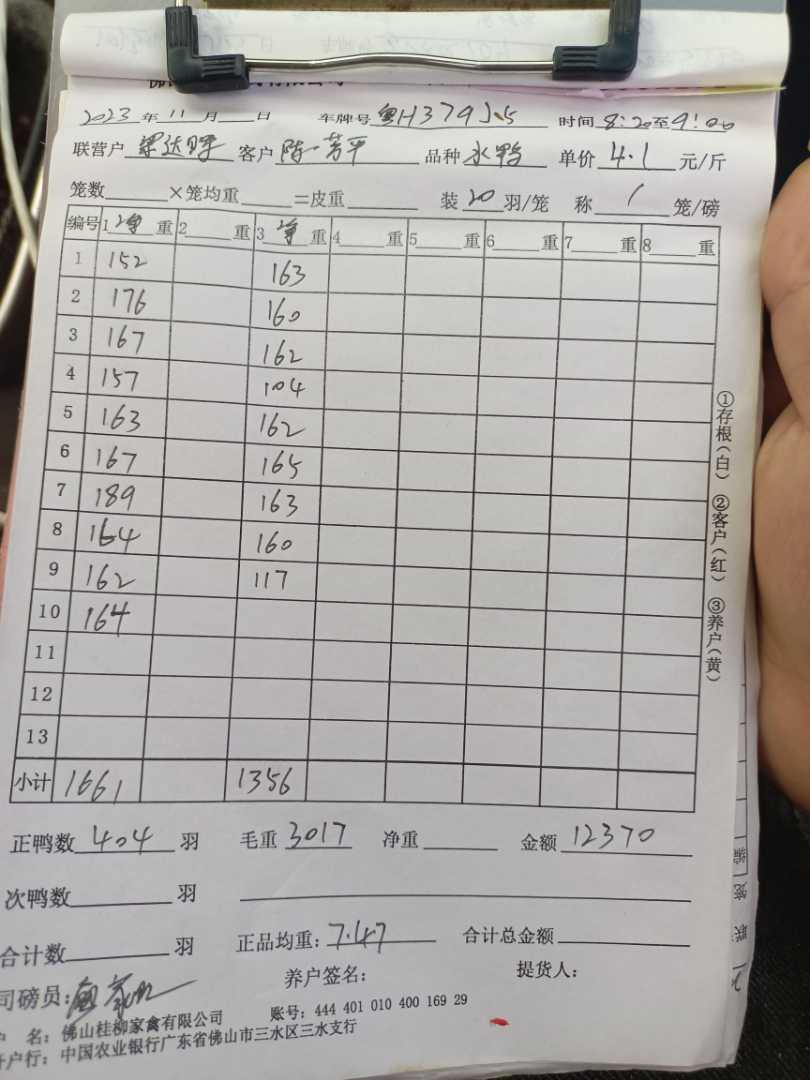 2023年11月 日 车牌号 粤H379J5 时间8:20至9:00
联营户 梁达晖 客户 陈芳平 品种 水鸭 单价 4.1 元/斤
笼数 ×笼均重 =皮重 装20羽/笼 称 1 笼/磅
编号 1 净重 2 重 3 净重 4 重 5 重 6 重 7 重 8 重
1 152 163
2 176 160
3 167 162
4 157 104
5 163 162
6 167 165
7 189 163
8 164 160
9 162 117
10 164
11
12
13
小计 1661 1356
正鸭数 404 羽 毛重 3017 净重 金额 12370
次鸭数 羽
合计数 羽 正品均重: 7.47 合计总金额
司磅员: 养户签名: 提货人:
户 名: 佛山桂柳家禽有限公司 账号: 444 401 010 400 169 29
开户行: 中国农业银行广东省佛山市三水区三水支行
①存根(白) ②客户(红) ③养户(黄)